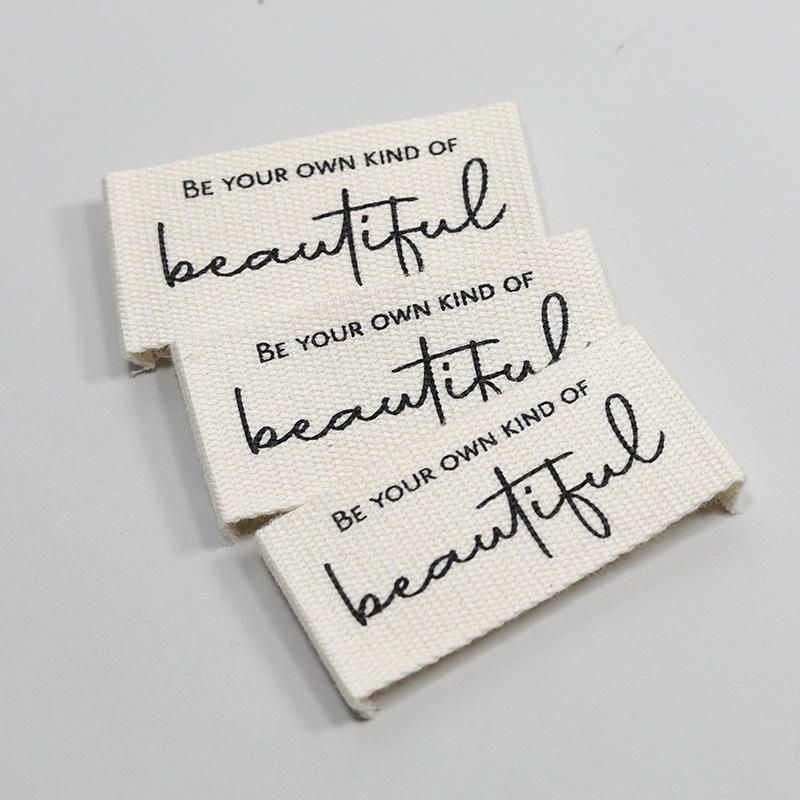 BE YOUR OWN KIND OF
beautiful
BE YOUR OWN KIND OF
beautiful
BE YOUR OWN KIND OF
beautiful